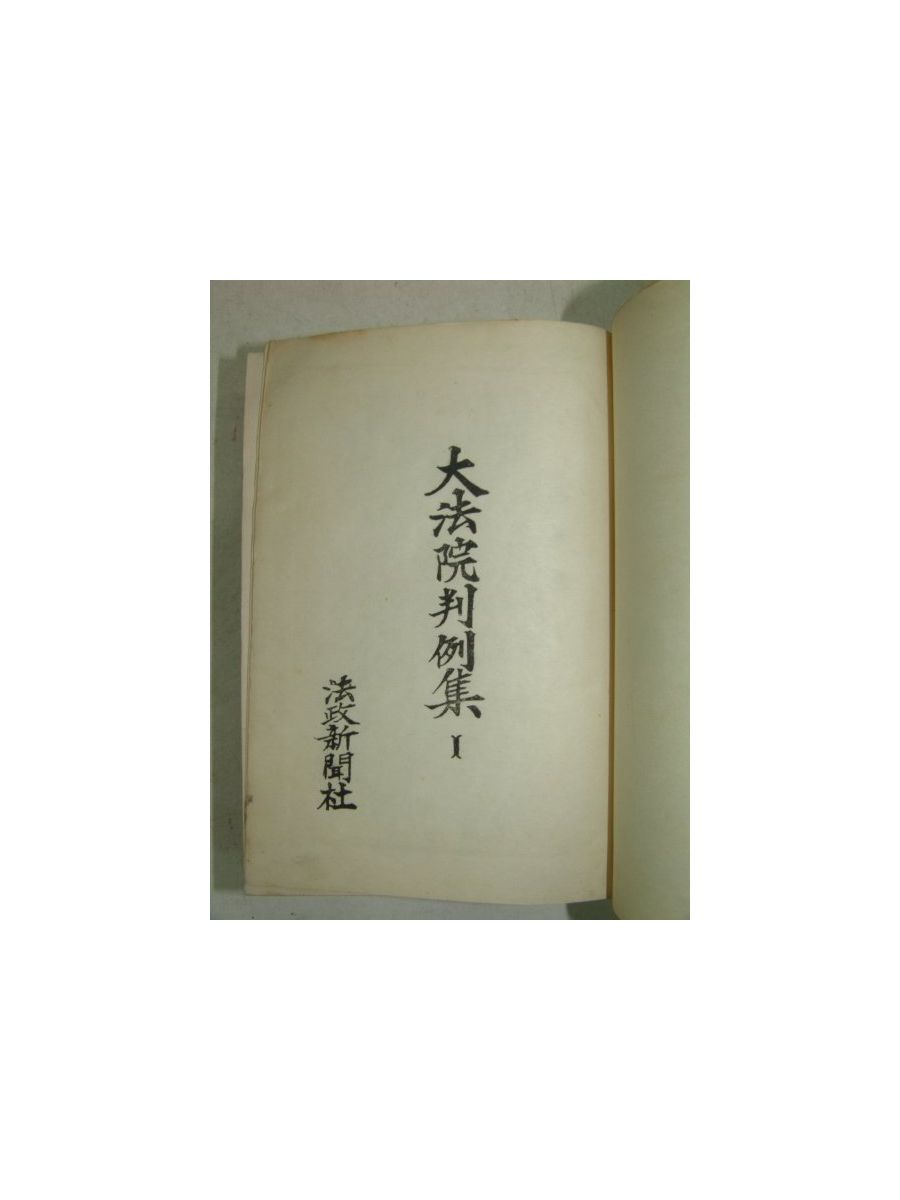 大法院判例集 I
法政新聞社